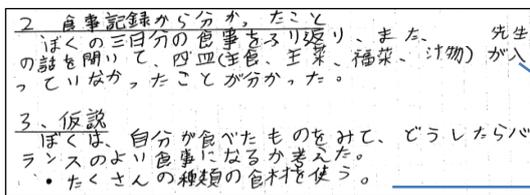 2 食事記録から分かったこと
ぼくの三日分の食事をふり返り、また、 先生
の話を聞いて、四皿(主食、主菜、福菜、汁物)が入
っていなかったことが分かった。
3、仮説
ぼくは、自分が食べたものをみて、どうしたらバ
ランスのよい食事になるか考えた。
・たくさんの種類の食材を使う。